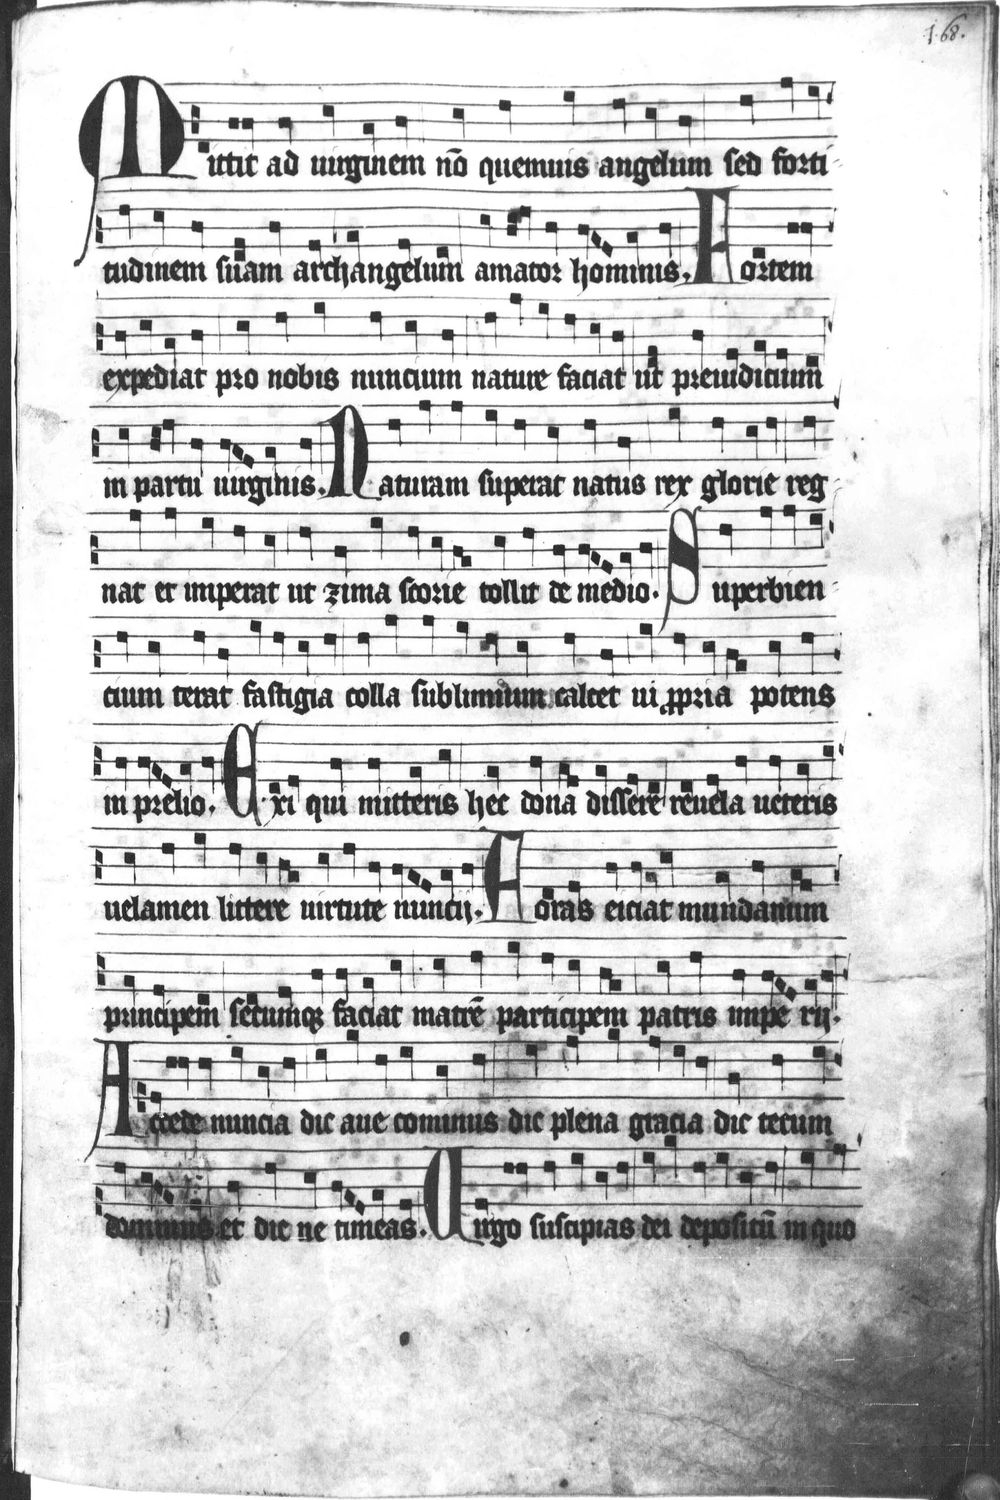 .j.68.
Mittit ad uirginem nō quemuis angelum sed forti
tudinem suam archangelum amator hominis. Fortem
expediat pro nobis nuncium nature faciat ut preiudicium
in partu uirginis. Naturam superat natus rex glorie reg
nat et imperat ut zima scorie tollit de medio. Superbien
cium terat fastigia colla sublimium calcet ui ꝓpria potens
in prelio. Exi qui mitteris hec dona dissere reuela ueteris
uelamen littere uirtute nuncij. Foras eiciat mundanum
principem secumqꝫ faciat matrē participem patris impe rij.
Accede nuncia dic aue cominus dic plena gracia dic tecum
dominus et dic ne timeas. Uirgo suscipias dei depositū in quo